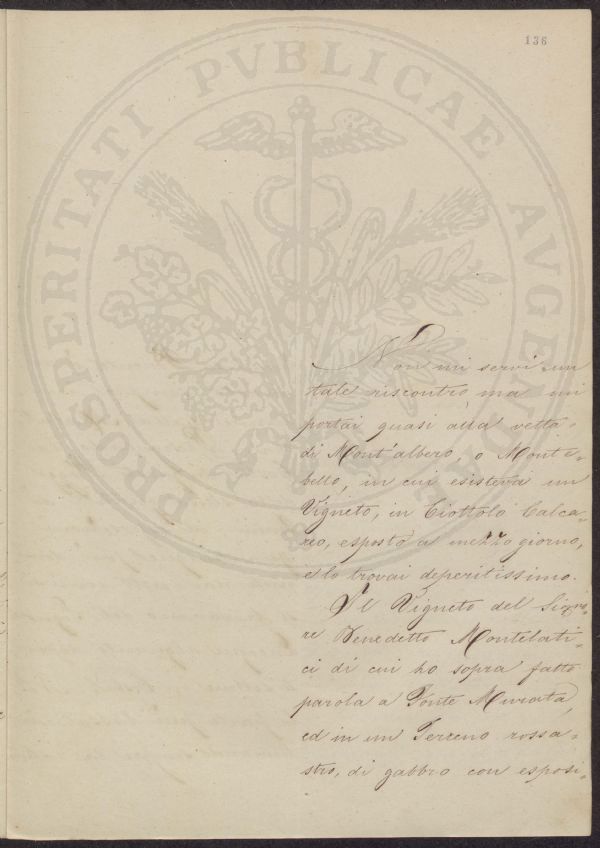 136
PROSPERITATI PVBLICAE AVGENDAE
Non mi servì un
tale riscontro, ma mi
portai quasi alla vetta
di Mont'albero, o Monte=
bello, in cui esisteva un
Vigneto, in Ciottolo Calca=
reo, esposto a mezzo giorno,
e lo trovai deperitissimo.
Il Vigneto del Signo=
re Benedetto Montelati=
ci di cui ho sopra fatto
parola a Ponte Murata,
ed in un Terreno rossa=
stro, di gabbro con esposi=